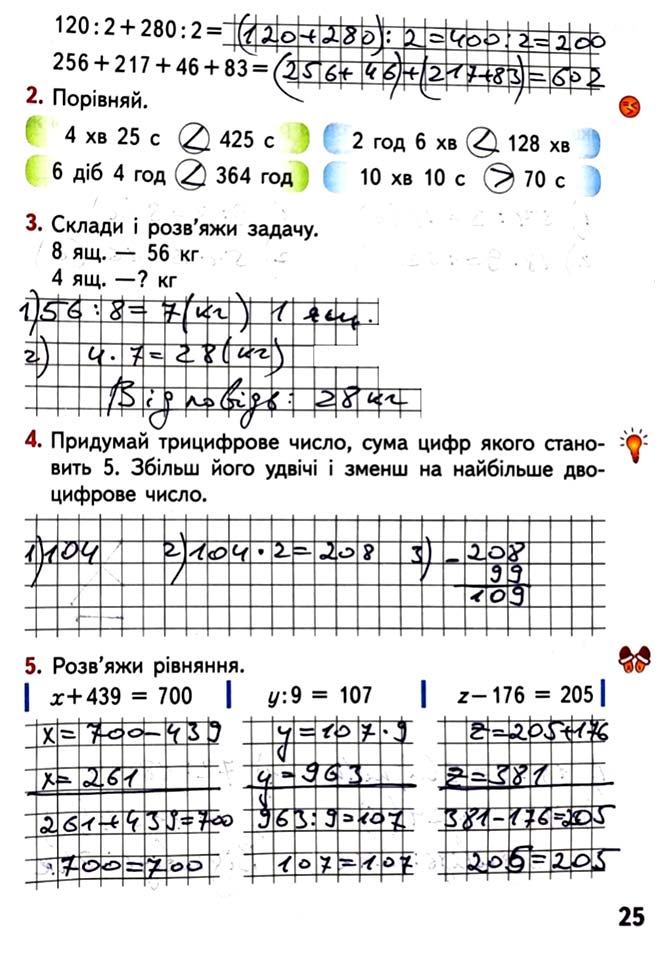 120 : 2 + 280 : 2 = (120+280) : 2=400:2=200
256 + 217 + 46 + 83 = (256+46)+(217+83)=602
2. Порівняй.
4 хв 25 с < 425 с 2 год 6 хв < 128 хв
6 діб 4 год < 364 год 10 хв 10 с > 70 с
3. Склади і розв'яжи задачу.
8 ящ. — 56 кг
4 ящ. —? кг
1) 56 : 8 = 7 (кг) 1 ящ.
2) 4 · 7 = 28 (кг)
Відповідь: 28 кг
4. Придумай трицифрове число, сума цифр якого стано-
вить 5. Збільш його удвічі і зменш на найбільше дво-
цифрове число.
1) 104 2) 104 · 2 = 208 3) - 208
99
109
5. Розв'яжи рівняння.
x + 439 = 700 y : 9 = 107 z − 176 = 205
x = 700 − 439 y = 107 · 9 z = 205 + 176
x = 261 y = 963 z = 381
261 + 439 = 700 963 : 9 = 107 381 − 176 = 205
700 = 700 107 = 107 205 = 205
25